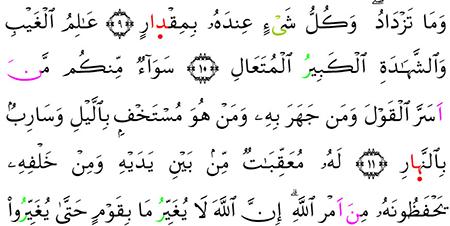 وَمَا تَزْدَادُۖ وَكُلُّ شَےْءٍ عِندَهُۥ بِمِقْدارٍ ٩ عَٰلِمُ اُ۬لْغَيْبِ
وَالشَّهَٰدَةِ اِ۬لْكَبِيرُ اُ۬لْمُتَعَالِ ١٠ سَوَآءٌ مِّنكُم مَّنَ
اَسَرَّ اَ۬لْقَوْلَ وَمَن جَهَرَ بِهِۦ وَمَنْ هُوَ مُسْتَخْفِۢ بِالَّيْلِ وَسَارِبُۢ
بِالنَّهارِ ١١ لَهُۥ مُعَقِّبَٰتٌ مِّنۢ بَيْنِ يَدَيْهِ وَمِنْ خَلْفِهِۦ
يَحْفَظُونَهُۥ مِنَ اَمْرِ اِ۬للَّهِۖ إِنَّ اَ۬للَّهَ لَا يُغَيِّرُ مَا بِقَوْمٍ حَتَّىٰ يُغَيِّرُواْ